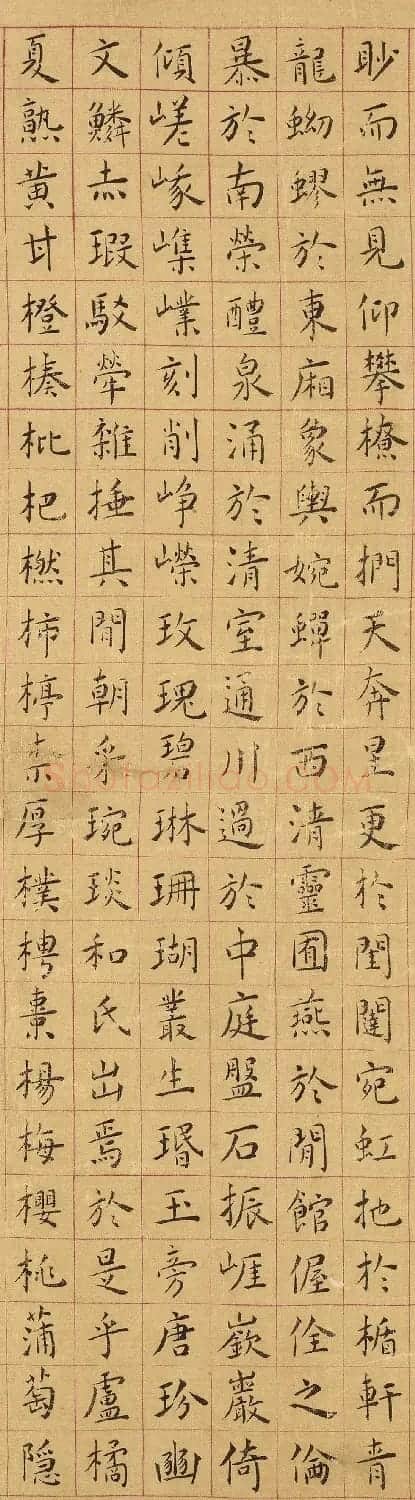 眇而無見仰攀橑而捫天奔星更於閨闥宛虹扡於楯軒青
龍蚴蟉於東廂象輿婉蟬於西清靈圉燕於閒館偓佺之倫
暴於南榮醴泉涌於清室通川過於中庭盤石振崖嶔巖倚
傾嵯峨㠍嶫刻削崢嶸玫瑰碧琳珊瑚叢生瑉玉旁唐玢豳
文鱗赤瑕駮犖雜揷其閒朝采琬琰和氏出焉於是乎盧橘
夏熟黃甘橙楱枇杷橪柿楟柰厚樸梬棗楊梅櫻桃蒲萄隐